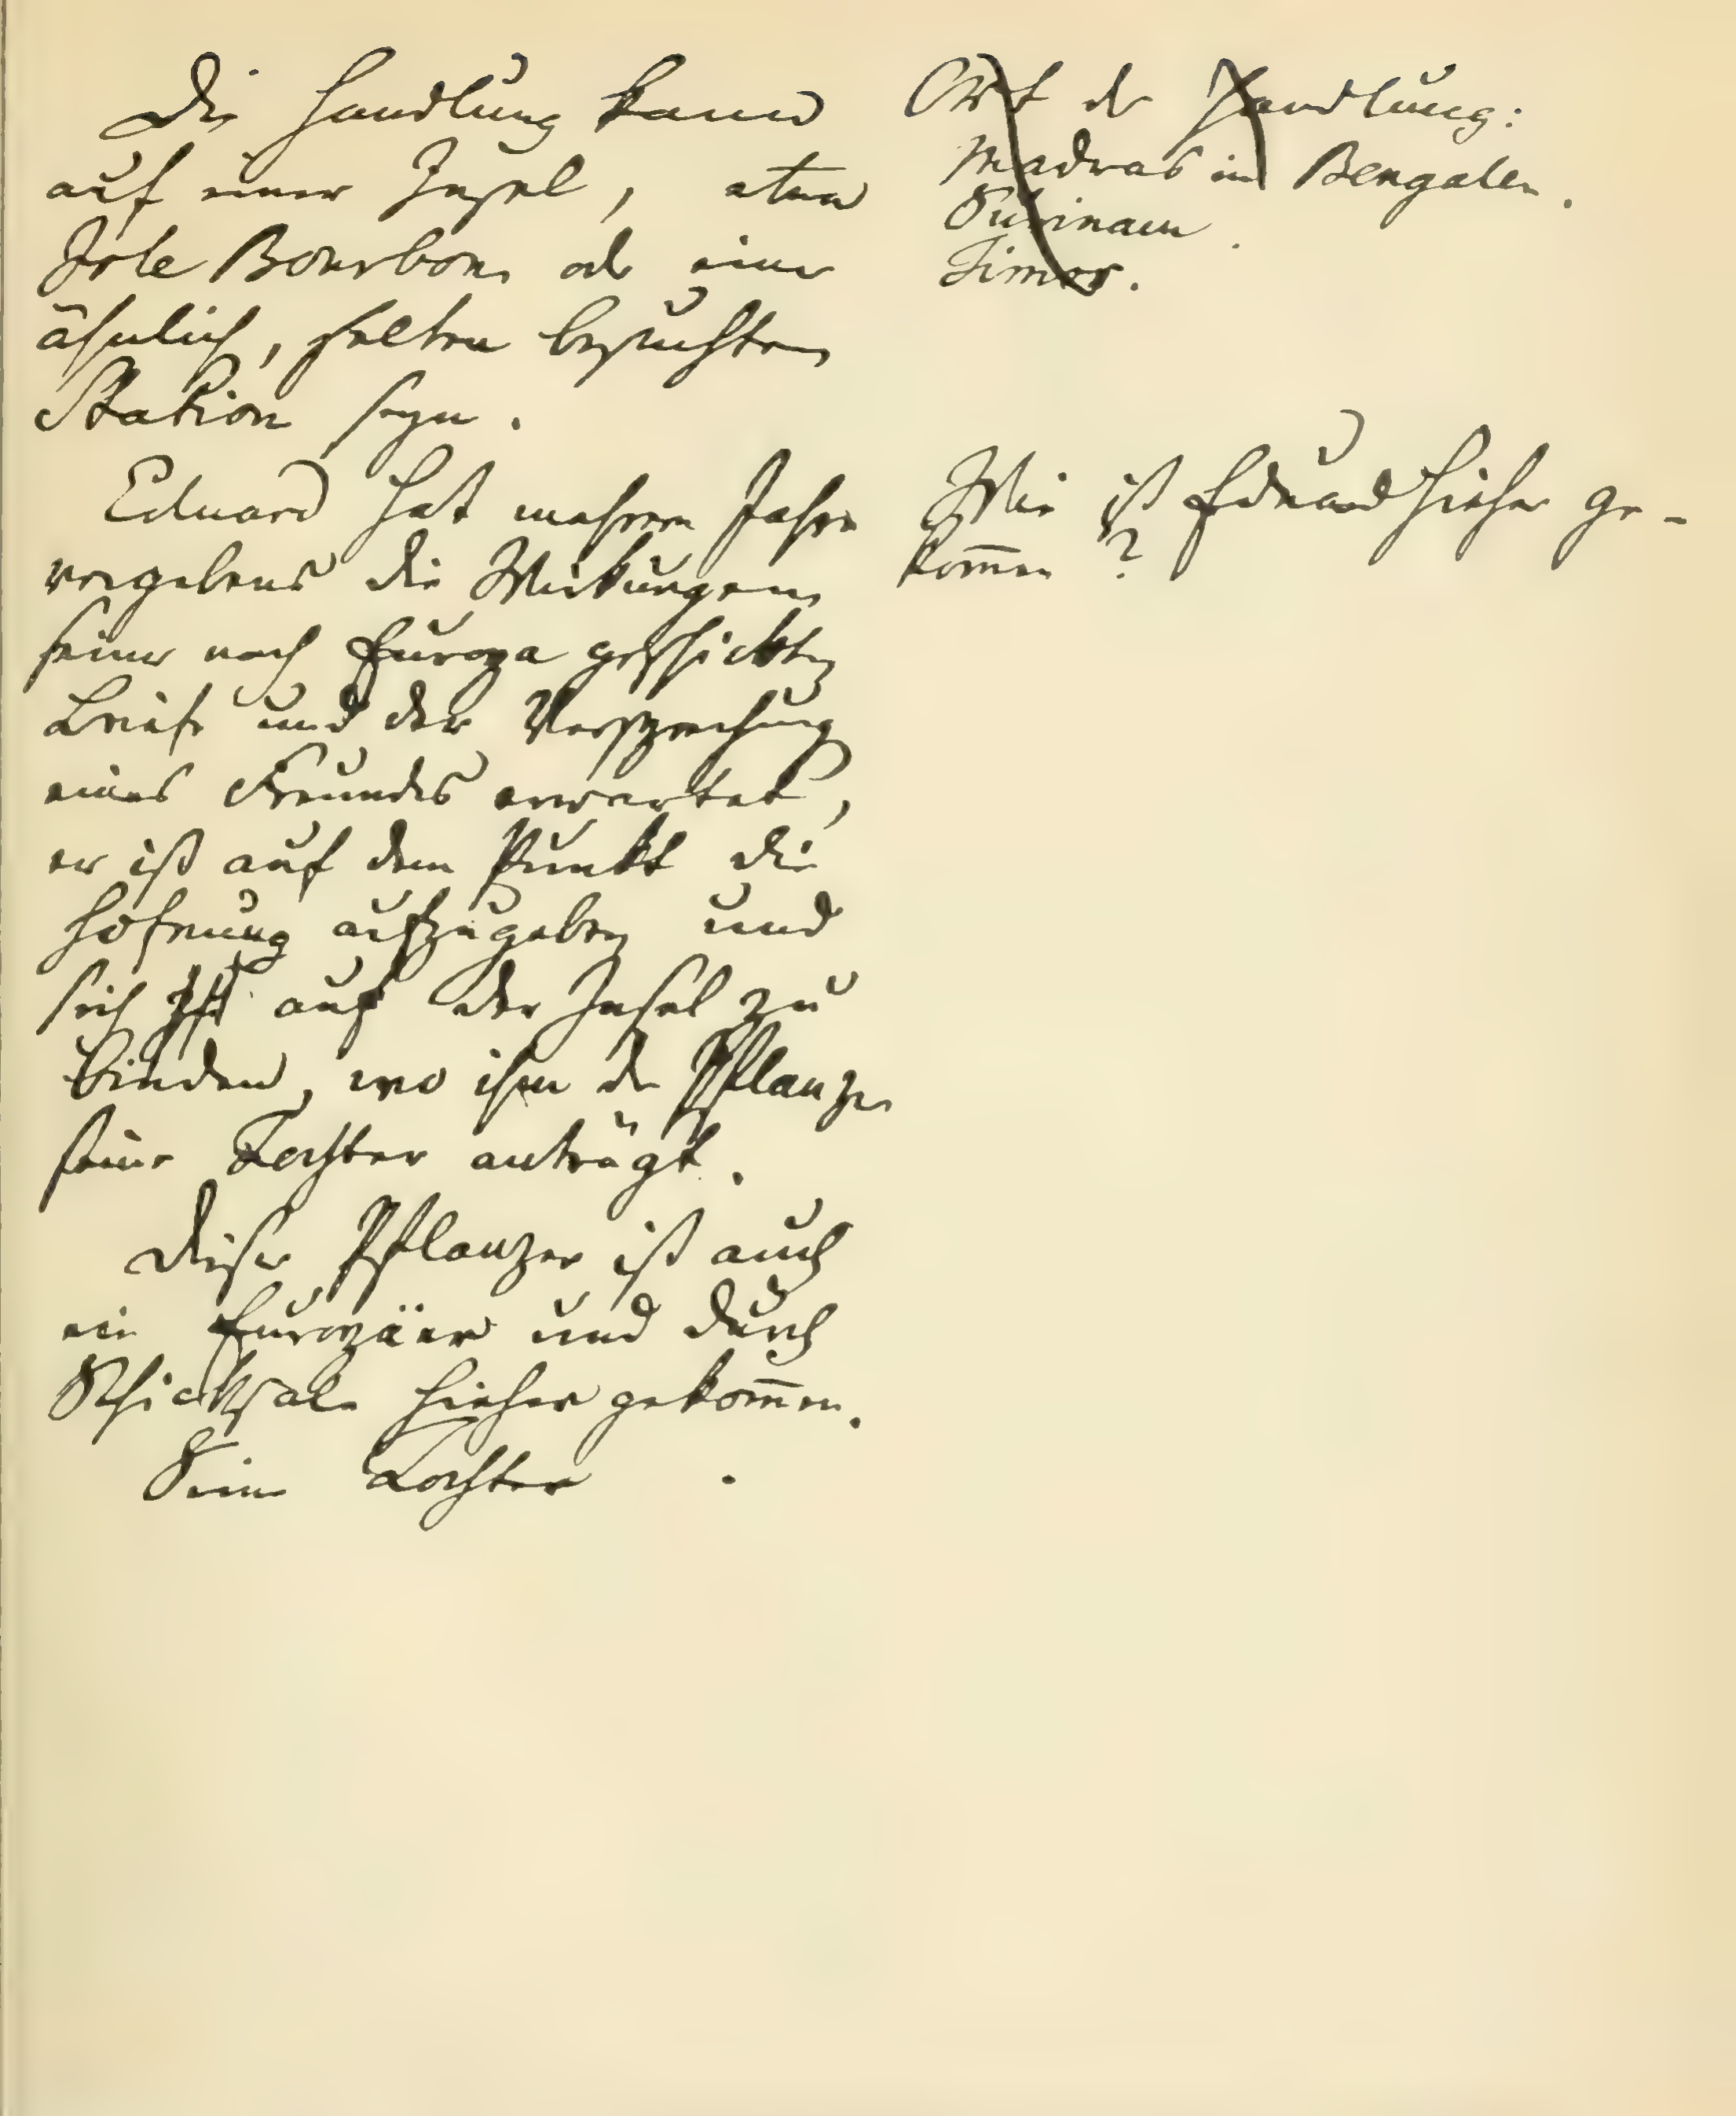 Die Handlung kann
auf einer Insel, etwa
Isle Bourbon oder einer
ähnlich, selten besuchten
Station seyn.
Eduard hat mehrere Jahre
vergebens die Wirkungen
seiner nach Europa geschickten
Briefe und der Versprechung
eines Freundes erwartet,
er ist auf dem Punkt die
Hofnung aufzugeben und
sich auf der Insel zu
binden, wo ihm der Pflanzer
seine Tochter anträgt.
Dieser Pflanzer ist auch
ein Europäer und durch
Schicksale hieher gekom̄en.
Seine Tochter .
Ort der Handlung:
Madras in Bengalen.
Surinam.
Timor.
Wie ist Eduard hieher ge-
kom̄en?